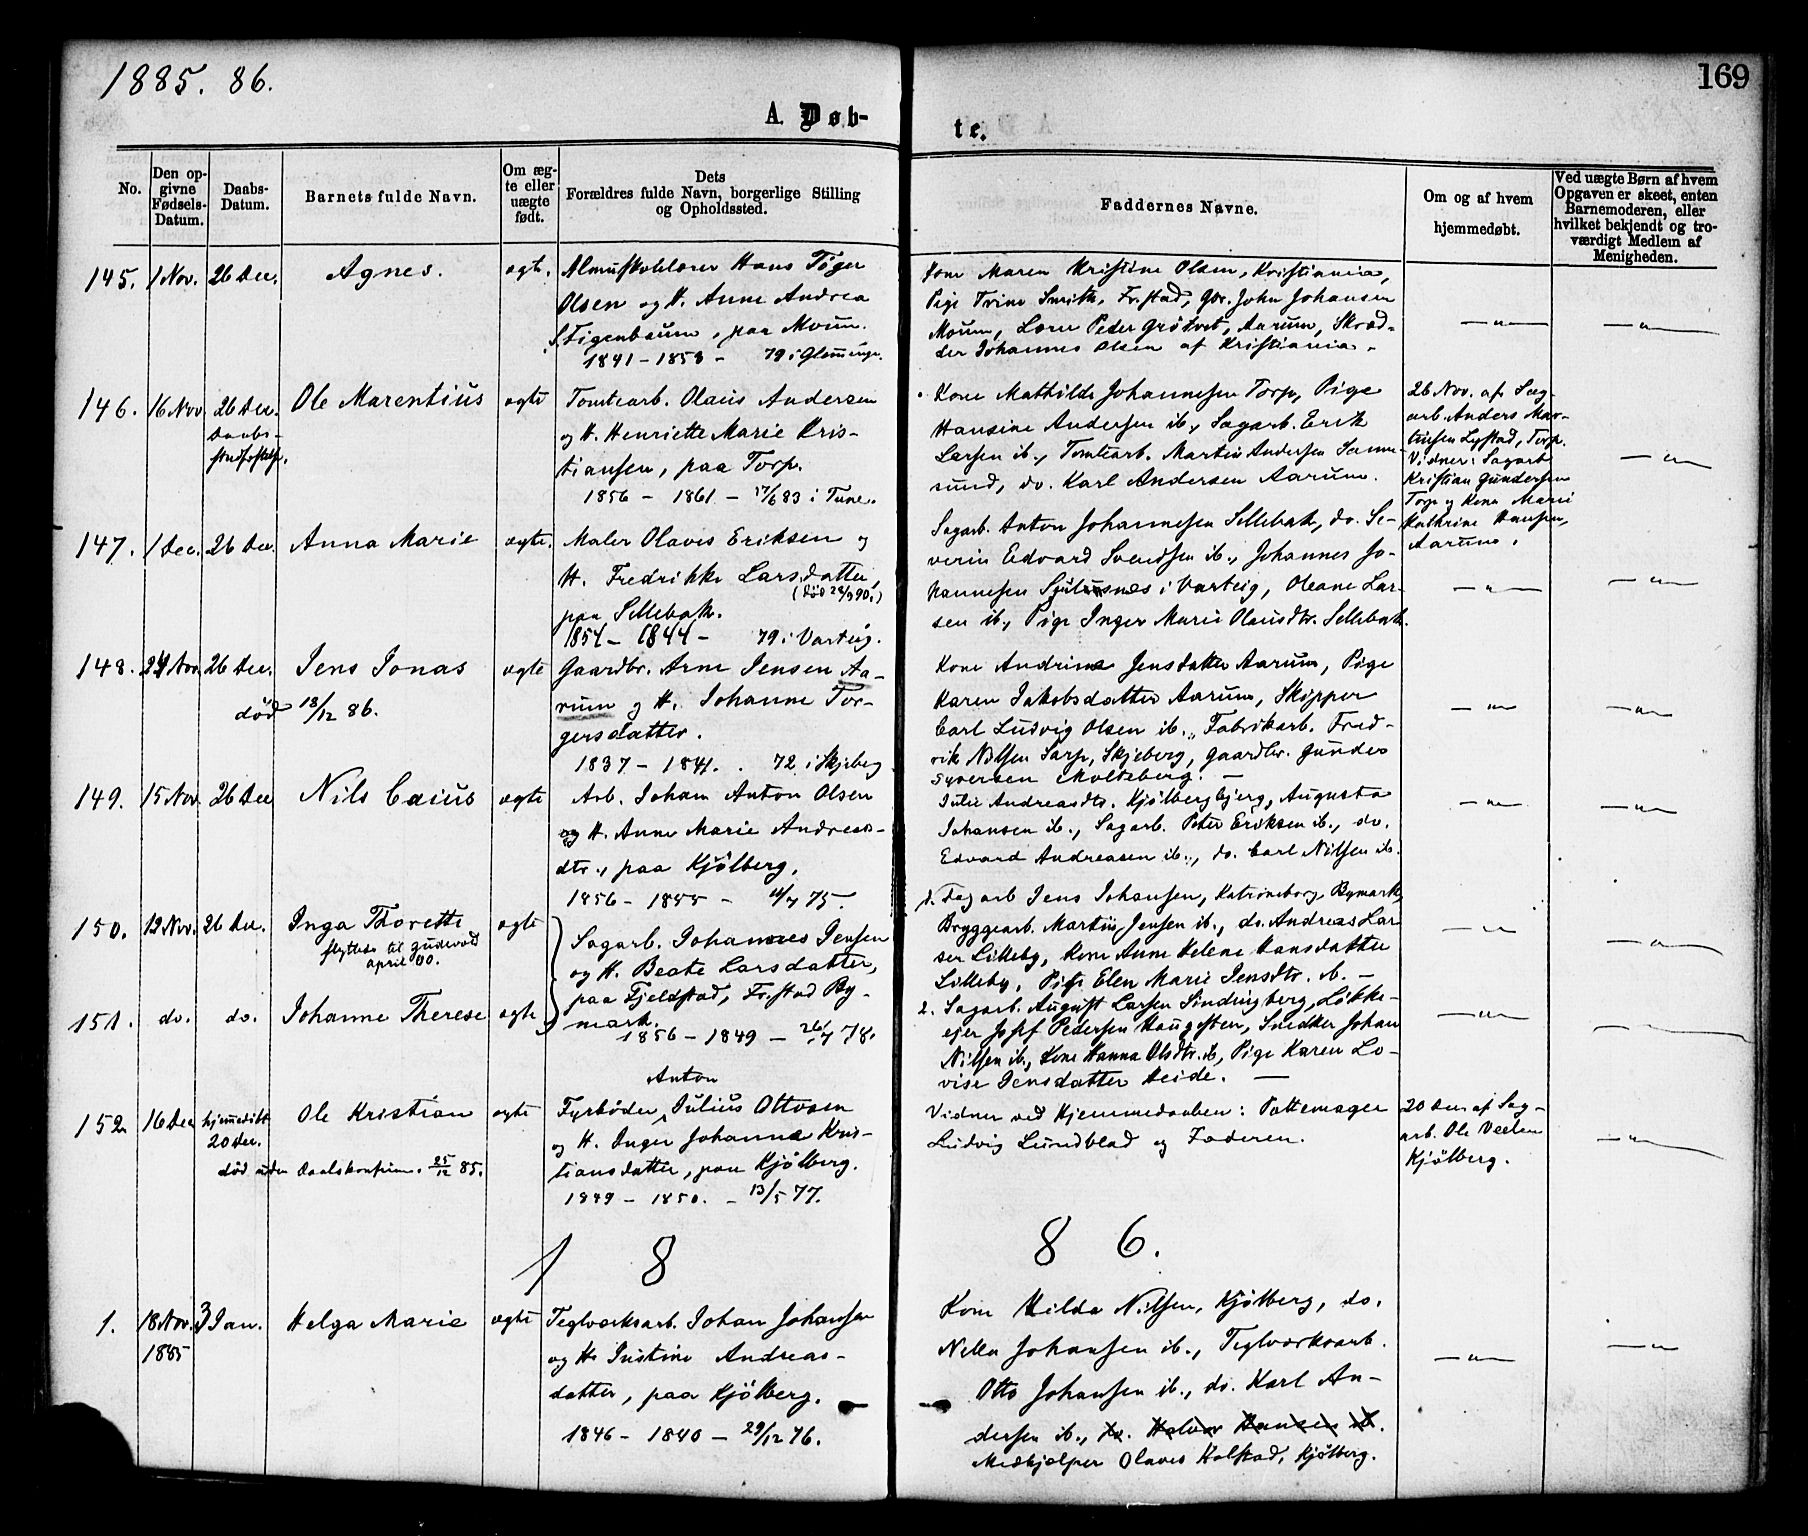 1885. 86.
169
A. Døb-
te.
No.
Den op-
givne
Fødsels-
Datum.
Daabs-
Datum.
Barnets fulde Navn.
Om æg-
te eller
uægte
født.
Dets
Forældres fulde Navn, borgerlige Stilling
og Opholdssted.
Faddernes Navne.
Om og af hvem
hjemmedøbt.
Ved uægte Børn af hvem
Opgaven er skeet, enten
Barnemoderen, eller
hvilket bekjendt og tro-
værdigt Medlem af
Menigheden.
145. 1 Nov. 26 Dec. Agnes. ægte.
Almuskolelærer Hans Tøger
Olsen og H. Anne Andrea
Figenbaum, paa Moum.
1841 - 1853 - 79 i Glemminge.
Kone Maren Kristine Olsen, Kristiania,
Pige Trine Smith, Fr.stad, Gbr. John Johansen
Moum, Lærer Peder Grøtvet, Aarum, Skræd-
der Johannes Olsen af Kristiania.
146. 16 Nov. 26 Dec. Ole Marentius ægte
Daabs-
Tomtearb. Olaus Andersen
og H. Henriette Marie Kris-
tiansen, paa Torp.
1856 - 1861 - 17/6 83 i Tune.
Kone Mathilde Johannesen Torp, Pige
Hansine Andersen ib., Sagarb. Erik
Larsen ib., Tomtearb. Martin Andersen Sanne-
sund, do. Karl Andersen Aarum.
26 Nov. af Sag-
arb. Anders Mar-
tinsen Lystad, Torp.
Vidner: Sagarb
Kristian Gundersen
Torp og Kone Marie
Kathrine Hansen,
Aarum.
147. 1 Dec. 26 Dec. Anna Marie ægte.
Maler Olaves Eriksen og
H. Fredrikke Larsdatter,
(død 90.)
paa Sellebak.
1854 - 1844 - 79 i Varteig.
Sagarb. Anton Johannesen Sellebak, do. Se-
verin Edvard Svendsen ib., Johannes Jo-
hannesen i Varteig, Oleane Lar-
sen ib., Pige Inger Marie Olausdtr. Sellebak.
148. 24 Nov. 26 Dec. Jens Jonas ægte
død 18/12 86.
Gaardbr. Arne Jensen Aa-
rum og H. Johanne Tor-
gersdatter.
1837 - 1841. 72 i Skjeberg
Kone Andrine Jensdatter Aarum, Pige
Karen Jakobsdatter Aarum, Skipper
Carl Ludvig Olsen ib., Fabrikarb. Fred-
rik Nilsen Sarp, Skjeberg, Gaardbr. Gunder
Syversen Moldeberg.
149. 15 Nov. 26 Dec Nils Caius ægte
Arb. Johan Anton Olsen
og H. Anne Marie Andreas-
dtr., paa Kjølberg.
1856 - 1855 - 75.
Julie Andreasdtr. Kjølbergbjerg, Augusta
Johansen ib., Sagarb. Peter Eriksen ib., do.
Edvard Andreasen ib., do. Carl Nilsen ib.
150. 12 Nov. 26 Dec. Inga Thorette ægte
flyttede til
april 00.
Sagarb. Johannes Jensen
og H. Beate Larsdatter,
paa Fjeldstad, Fr.stad By-
mark.
1856 - 1849 - 26/7 78.
1. Sagarb Jens Johansen, Katrineborg, Bymark,
Bryggearb. Martin Jensen ib., do. Andreas Lar-
sen Lilleby, Kone Anne Helene Hansdatter
Lilleby, Pige Elen Marie Jensdtr. ib. -
151. do. do. Johanne Therese ægte
2. Sagarb. August Larsen Sindingberg, Løkke-
ejer Josef Pedersen Haugesten, Snedker Johan
Nilsen ib., Kone Hanna Olsdtr. ib., Pige Karen Lo-
vise Jensdatter Heide. -
152. 16 Dec hjemmedøbt Ole Kristian ægte
20 Dec.
død uden Daabskonfirm. 25/12 85.
Anton
Fyrbøder Julius Ottosen
og H. Inger Johanne Kris-
tiansdatter, paa Kjølberg.
1849 - 1850. - 13/5 77.
Vidner ved Hjemmedaaben: Pottemager
Ludvig Lundblad og Faderen.
20 Dec af Sag-
arb. Ole Veelen
Kjølberg.
1 8 8 6.
1. 18 Nov. 3 Jan. Helga Marie ægte
1885
Teglværksarb. Johan Johansen
og H. Justine Andreas-
datter, paa Kjølberg.
1846 - 1840 - 29/12 76.
Kone Hilda Nilsen, Kjølberg, do.
Nella Johansen ib., Teglværksarb.
Otto Johansen ib., do. Karl An-
dersen ib., do. Halvor Hansen ib.
Medhjælper Olaves Holstad, Kjølberg.